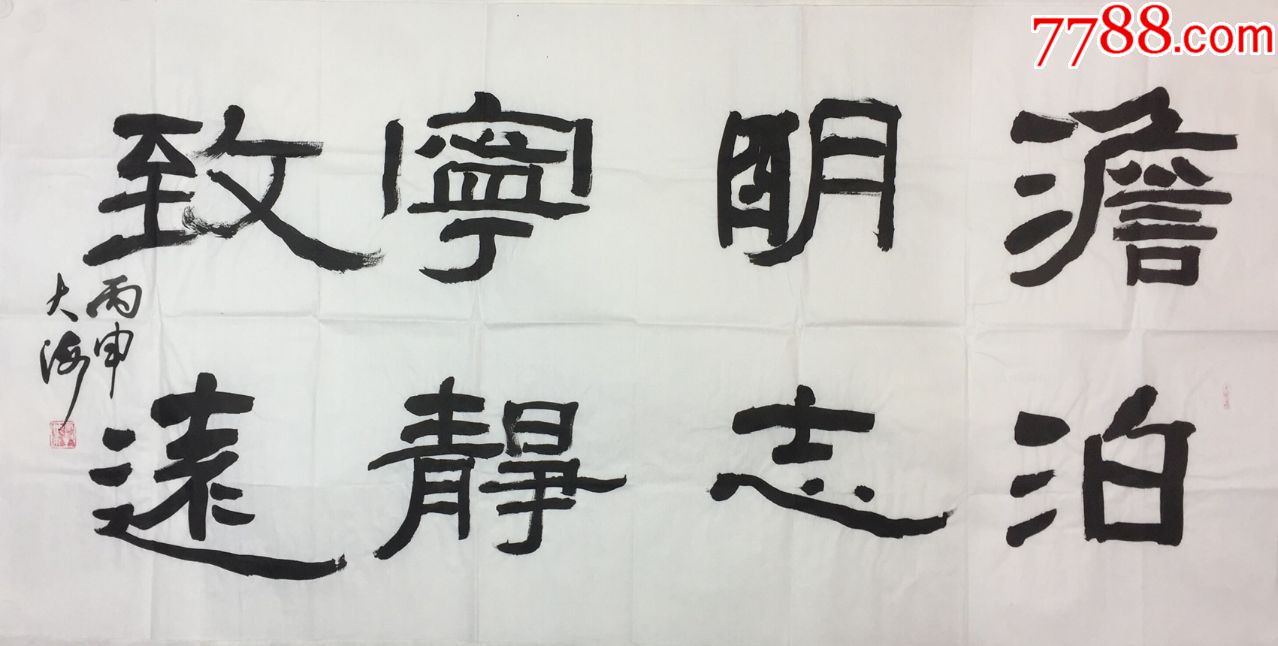 澹泊
明志
寧靜
致遠
丙申
大海
7788.com